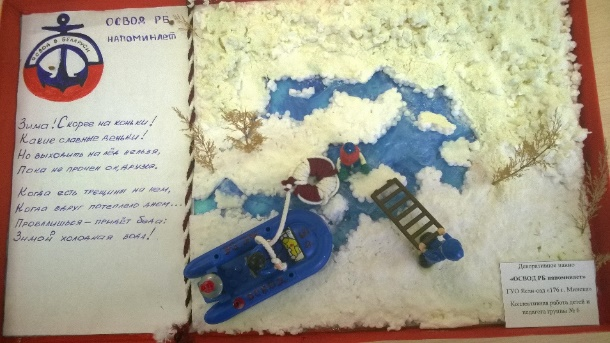 ОСВОД БЕЛАРУСИ
ОСВОД РБ
НАПОМИНАЕТ
Зима! Скорее на коньки!
Какие славные деньки!
Но выходить на лёд нельзя,
Пока не прочен он, друзья.
Когда есть трещины на нём,
Когда вдруг потеплело днём...
Провалишься – придёт беда:
Зимой холодная вода!
Декоративное панно
«ОСВОД РБ напоминает»
ГУО Ясли-сад «176 г. Минска»
Коллективная работа детей и
педагога группы № 6